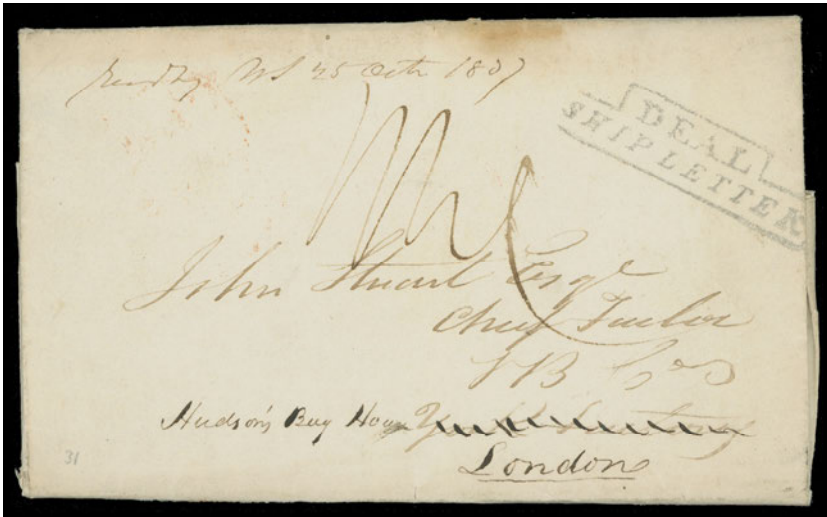 25 Octr 1837
DEAL
SHIP LETTER
John Stuart Esqr
Chief Factor
HB Co
Hudson's Bay House
London
31